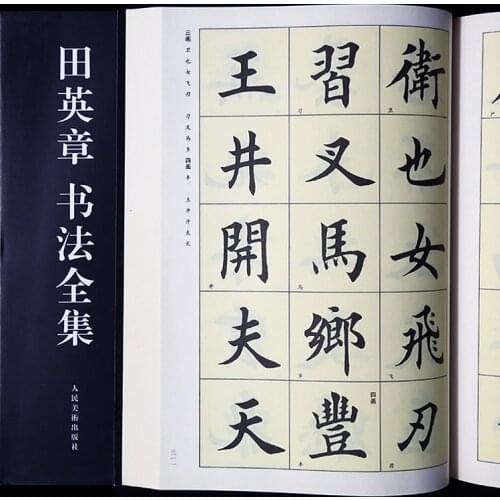 田英章 书法全集
人民美術出版社
衛也女飛刃
卫
飞
習叉馬鄉豐
习
马
乡
四画
丰
王井開夫天
开
三画 卫 也 女 飞 刃 习 叉 马 乡 四画 丰 王 井 开 夫 天